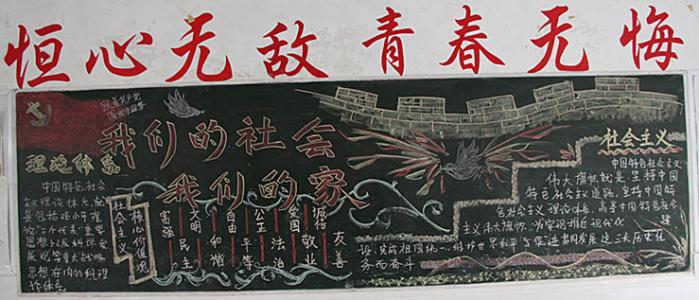 恒心无敌 青春无悔
我们的社会
我们的家
理论体系
中国特色社会
主义理论体系,就
是包括邓小平理
论“三个代表”重要
思想以及科学发
展观等重大战略
思想在内的科理
论体系。
社会主义
核心价值观
富强
民主
文明
和谐
自由
平等
公正
法治
爱国
敬业
诚信
友善
社会主义
中国特色社会主义
伟大旗帜就是坚持中国
特色社会主义道路,坚持中国特
色社会主义理论体系,高举中国特色社会
主义伟大旗帜,为实现推进现代化建
设,完成祖国统一,维护世界和平与促进共同发展这三大历史任
务而奋斗